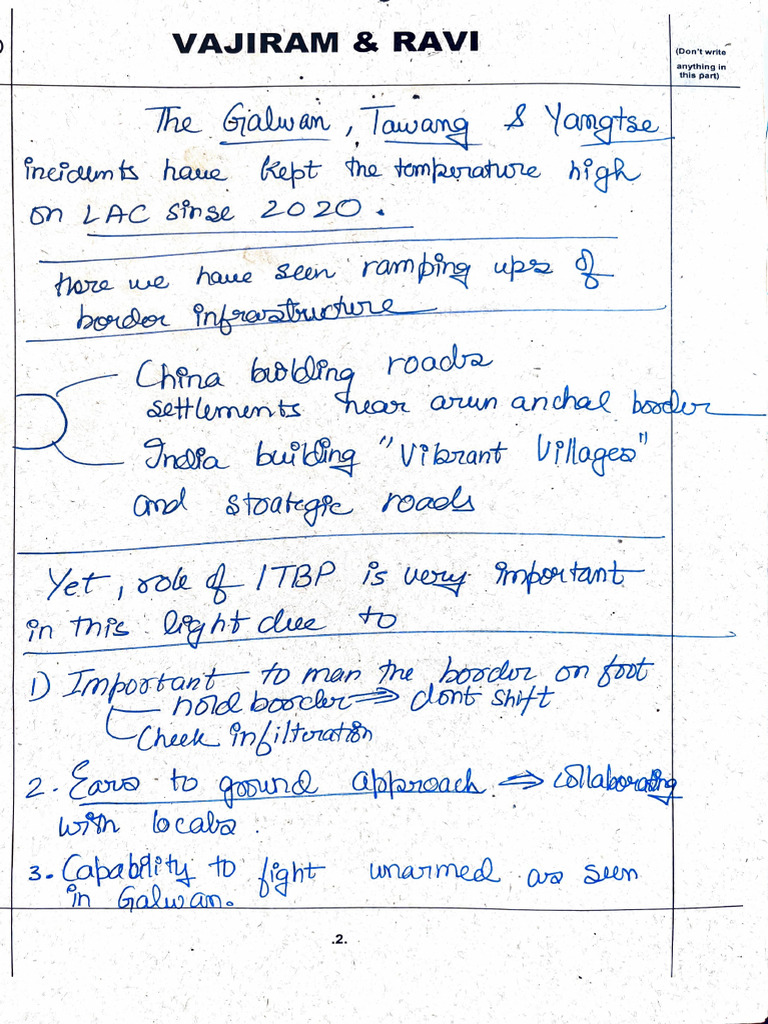 VAJIRAM & RAVI
(Don't write
anything in
this part)
The Galwan, Tawang & Yangtse
incidents have kept the temperature high
on LAC sinse 2020.
Here we have seen ramping ups of
border infrastructure
China building roads
settlements near arunanchal border
India building "Vibrant Villages"
and strategic roads
Yet, role of ITBP is very important
in this light due to
1) Important to man the border on foot
hold border ⇒ dont shift
Check infilteration
2. Ears to ground approach ⇒ collaborating
with locals.
3. Capability to fight unarmed as seen
in Galwan.
.2.